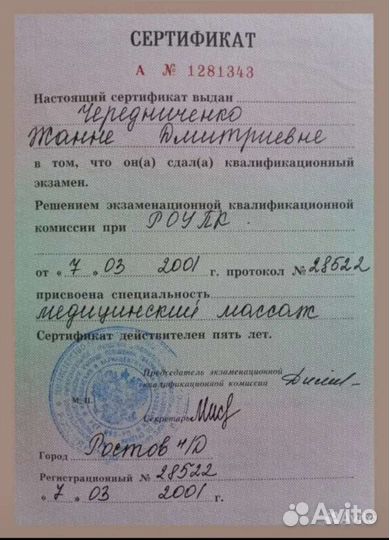 СЕРТИФИКАТ
А № 1281343
Настоящий сертификат выдан
Чередниченко
Жанне Дмитриевне
в том, что он(а) сдал(а) квалификационный
экзамен.
Решением экзаменационной квалификационной
комиссии при РОУПК
от « 7 » 03 2001 г. протокол № 28522
присвоена специальность
медицинский массаж
Сертификат действителен пять лет.
Председатель экзаменационной
квалификационной комиссии
М.П.
Секретарь
Город Ростов н/Д
Регистрационный № 28522
« 7 » 03 2001 г.
Avito